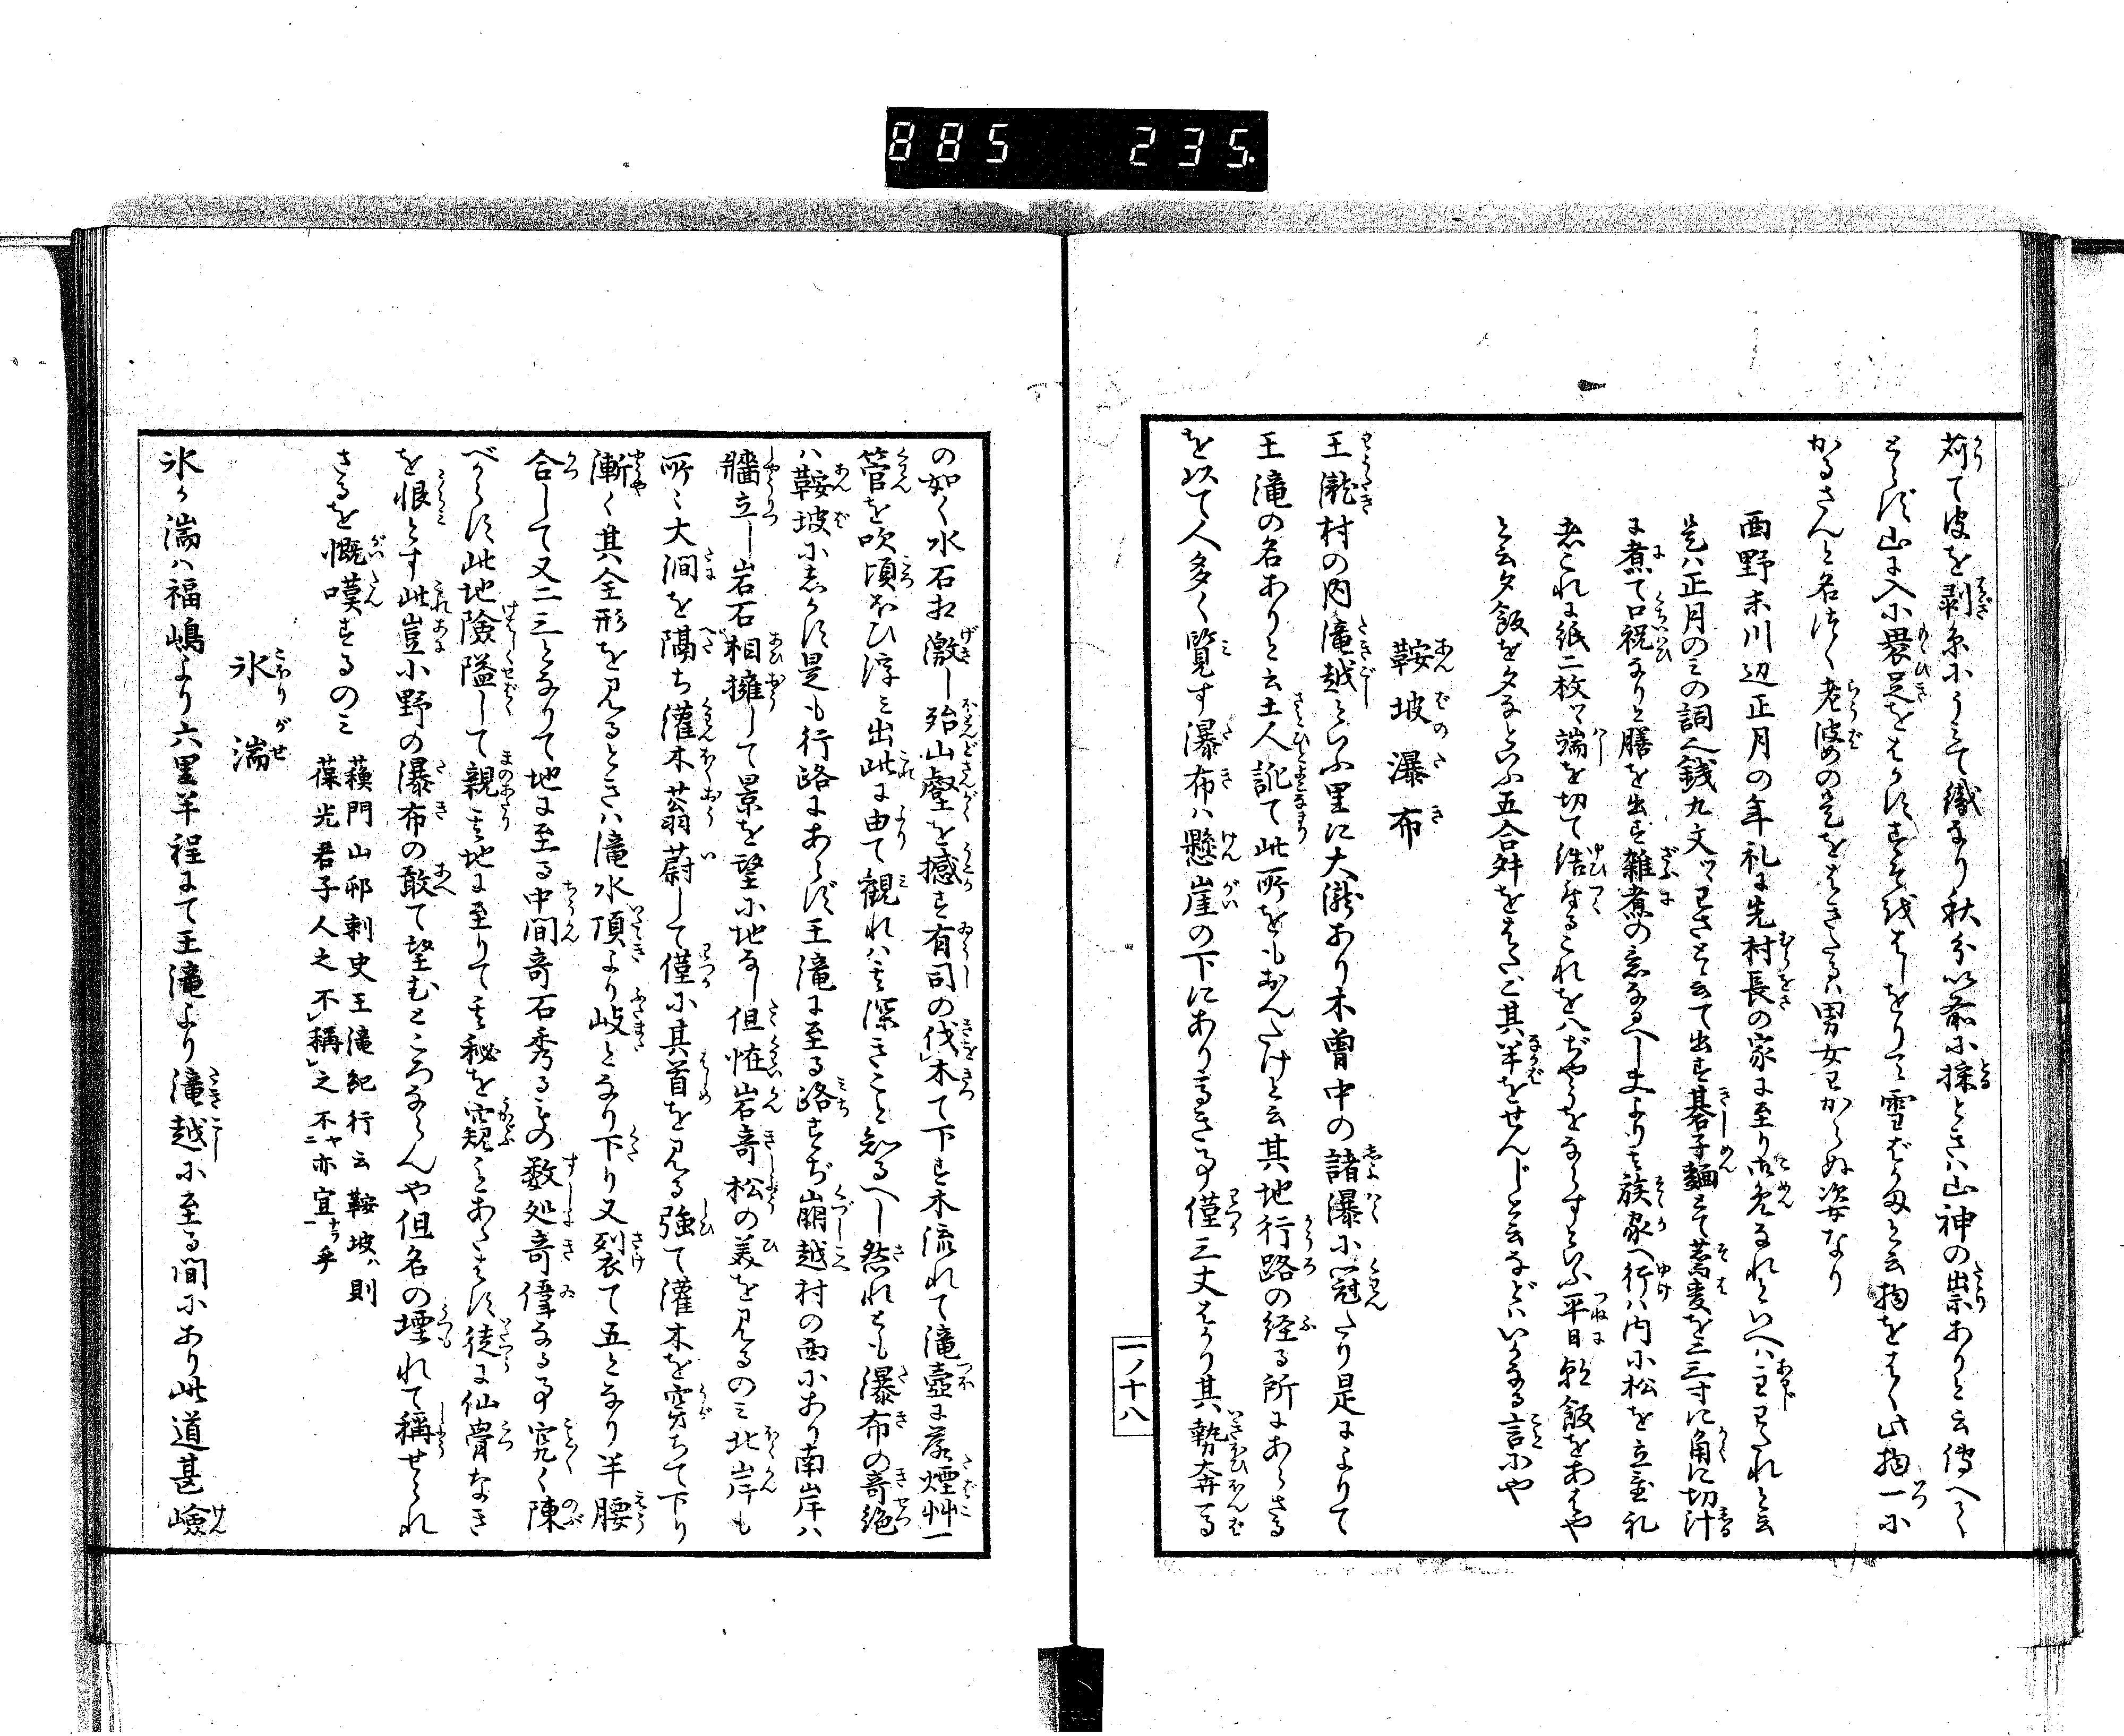 885 235
苅て皮を剥糸にうみて織なり秋分以前に採ときハ山神の祟ありと云傳へて
とらず山に入小裙足をはかず
かるさんと名づく老婆の是をはきたるハ男女わからぬ姿なり
西野末川辺正月の年礼に先村長の家に至り御免なれといへハ主それと云
是ハ正月のミの詞之銭九文ツヽさとて出す碁子麺とて蕎麦を三寸に角に切汁
に煮て口祝なりと膳を出す雑煮の意なるへし夫より其族家へ行ハ内に松を立置礼
者これに紙二枚ツヽ端を切て結付るこれを八ぢやうをならすといふ平日朝飯をあさや
と云夕飯を夕なといふ五合舛をはたご其半をせんじと云などハいかなる言にや
鞍坡瀑布
王瀧村の内滝越といふ里に大瀧あり木曽中の諸瀑に冠たり是によりて
王滝の名ありと云土人訛て此所をもおんたけと云其地行路の経る所にあらさる
を以て人多く覧す瀑布ハ懸崖の下にあり高き事僅三丈はかり其勢奔る
一ノ十八
の如く水石相激し殆山壑を撼す有司の伐木て下す木流れて滝壺に落煙艸一
管を吹頃ひ浮ミ出此に由て観れハ其深きこと知るへし然れとも瀑布の奇絶
ハ鞍坡にしかず是も行路にあらず王滝に至る路すぢ崩越村の西にあり南岸ハ
牆立し岩石相擁して景を望に地なし但恠岩奇松の美を見るのミ北岸も
所ミ大澗を隔ち灌木蓊蔚して僅に其首を見る強て灌木を穿ちて下り
漸く其全形を見るときハ滝水頂より岐となり下り又列て五となり半腰
合して又二三となりて地に至る中間奇石秀るもの数処奇偉なる事究く陳
べからず此地險隘して親其地に至りて其秘を窺ことあたはず徒に仙骨なき
を恨とす此豈小野の瀑布の敢て望むところならんや但名の堙れて稱せられ
さるを慨嘆するのミ
蘓門山邨剌史王滝紀行云鞍坡ハ則
葆光君子人之不稱之不亦宜乎
氷湍
氷ヶ湍ハ福嶋より六里半程にて王滝より滝越に至る間にあり此道甚嶮